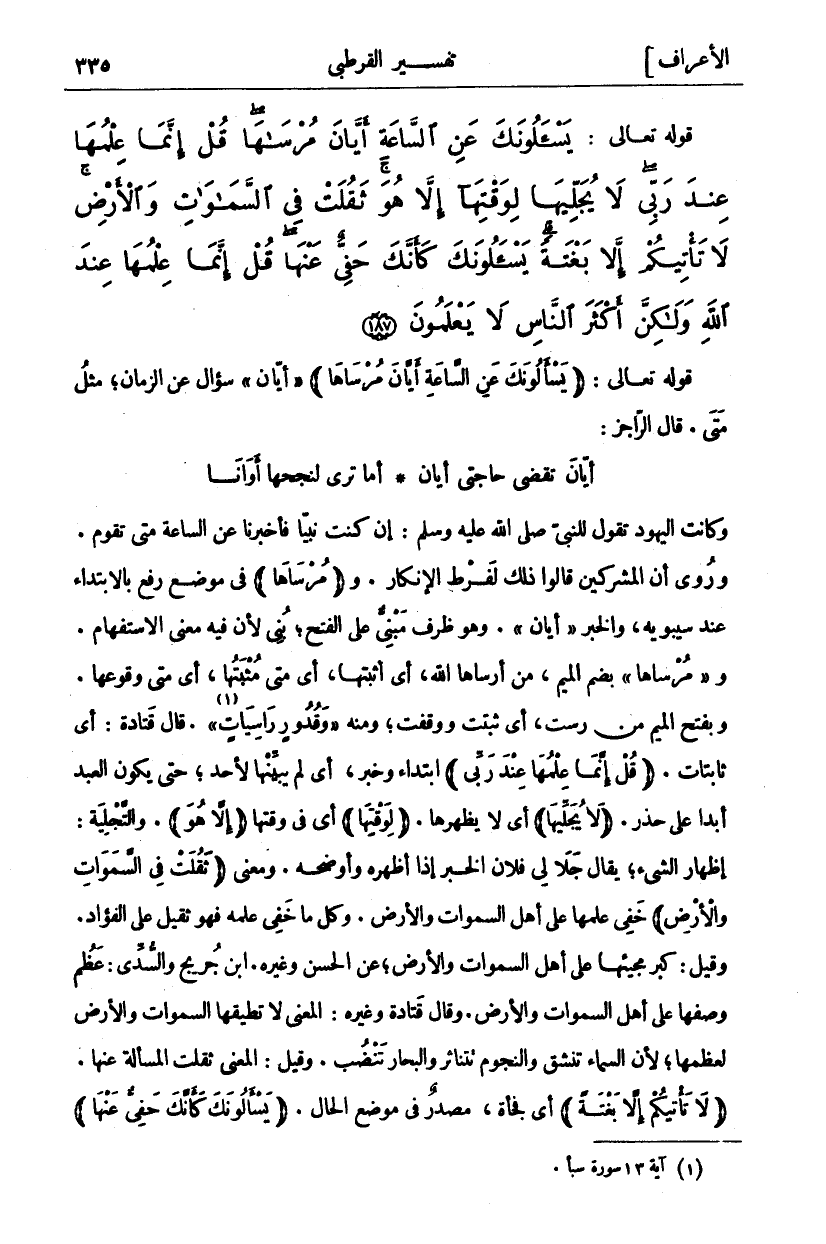 الأعراف] تفسير القرطبى ٣٣٥
قوله تعالى : يَسْـَٔلُونَكَ عَنِ ٱلسَّاعَةِ أَيَّانَ مُرْسَـٰهَا ۖ قُلْ إِنَّمَا عِلْمُهَا
عِندَ رَبِّى ۖ لَا يُجَلِّيهَا لِوَقْتِهَآ إِلَّا هُوَ ۚ ثَقُلَتْ فِى ٱلسَّمَـٰوَٰتِ وَٱلْأَرْضِ ۚ
لَا تَأْتِيكُمْ إِلَّا بَغْتَةً ۗ يَسْـَٔلُونَكَ كَأَنَّكَ حَفِىٌّ عَنْهَا ۖ قُلْ إِنَّمَا عِلْمُهَا عِندَ
ٱللَّهِ وَلَـٰكِنَّ أَكْثَرَ ٱلنَّاسِ لَا يَعْلَمُونَ ١٨٧
قوله تعالى : ﴿ يَسْأَلُونَكَ عَنِ السَّاعَةِ أَيَّانَ مُرْسَاهَا ﴾ « أيّان » سؤال عن الزمان؛ مثلُ
مَتَى . قال الرّاجز :
أيّانَ تقضى حاجتى أيان * أما ترى لنجحها أَوَانَــا
وكانت اليهود تقول للنبىّ صلى الله عليه وسلم : إن كنت نبيّا فأخبرنا عن الساعة متى تقوم .
ورُوى أن المشركين قالوا ذلك لفَرْط الإنكار . و ﴿ مُرْسَاهَا ﴾ فى موضع رفع بالابتداء
عند سيبويه، والخبر « أيان » . وهو ظرف مَبْنِىٌّ على الفتح؛ بُنِى لأن فيه معنى الاستفهام .
و « مُرْساها » بضم الميم ، من أرساها الله، أى أثبتها، أى متى مُثْبَتُها ، أى متى وقوعها .
وبفتح الميم من رست، أى ثبتت ووقفت؛ ومنه «وَقُدُورٍ رَاسِيَاتٍ» (١) . قال قَتادة : أى
ثابتات . ﴿ قُلْ إِنَّمَا عِلْمُهَا عِنْدَ رَبِّى ﴾ ابتداء وخبر، أى لم يبيِّنها لأحد ؛ حتى يكون العبد
أبدا على حذر . ﴿لَا يُجَلِّيهَا﴾ أى لا يظهرها . ﴿لِوَقْتِهَا﴾ أى فى وقتها ﴿إِلَّا هُوَ﴾ . والتَّجْلِية :
إظهار الشىء؛ يقال جَلَا لى فلان الخبر إذا أظهره وأوضحه . ومعنى ﴿ ثَقُلَتْ فِى السَّمَوَاتِ
وَالْأَرْضِ﴾ خَفِى علمها على أهل السموات والأرض . وكل ما خَفِى علمه فهو ثقيل على الفؤاد.
وقيل : كبر مجيئها على أهل السموات والأرض ؛عن الحسن وغيره. ابن جُريج والسُّدِّى: عَظُم
وصفها على أهل السموات والأرض. وقال قَتادة وغيره : المعنى لا تطيقها السموات والأرض
لعظمها؛ لأن السماء تنشق والنجوم تتناثر والبحار تَنْضُب . وقيل : المعنى ثقلت المسألة عنها .
﴿ لَا تَأْتِيكُمْ إِلَّا بَغْتَةً ﴾ أى فجأة ، مصدرٌ فى موضع الحال . ﴿ يَسْأَلُونَكَ كَأَنَّكَ حَفِىٌّ عَنْهَا ﴾
(١) آية ١٣ سورة سبأ .